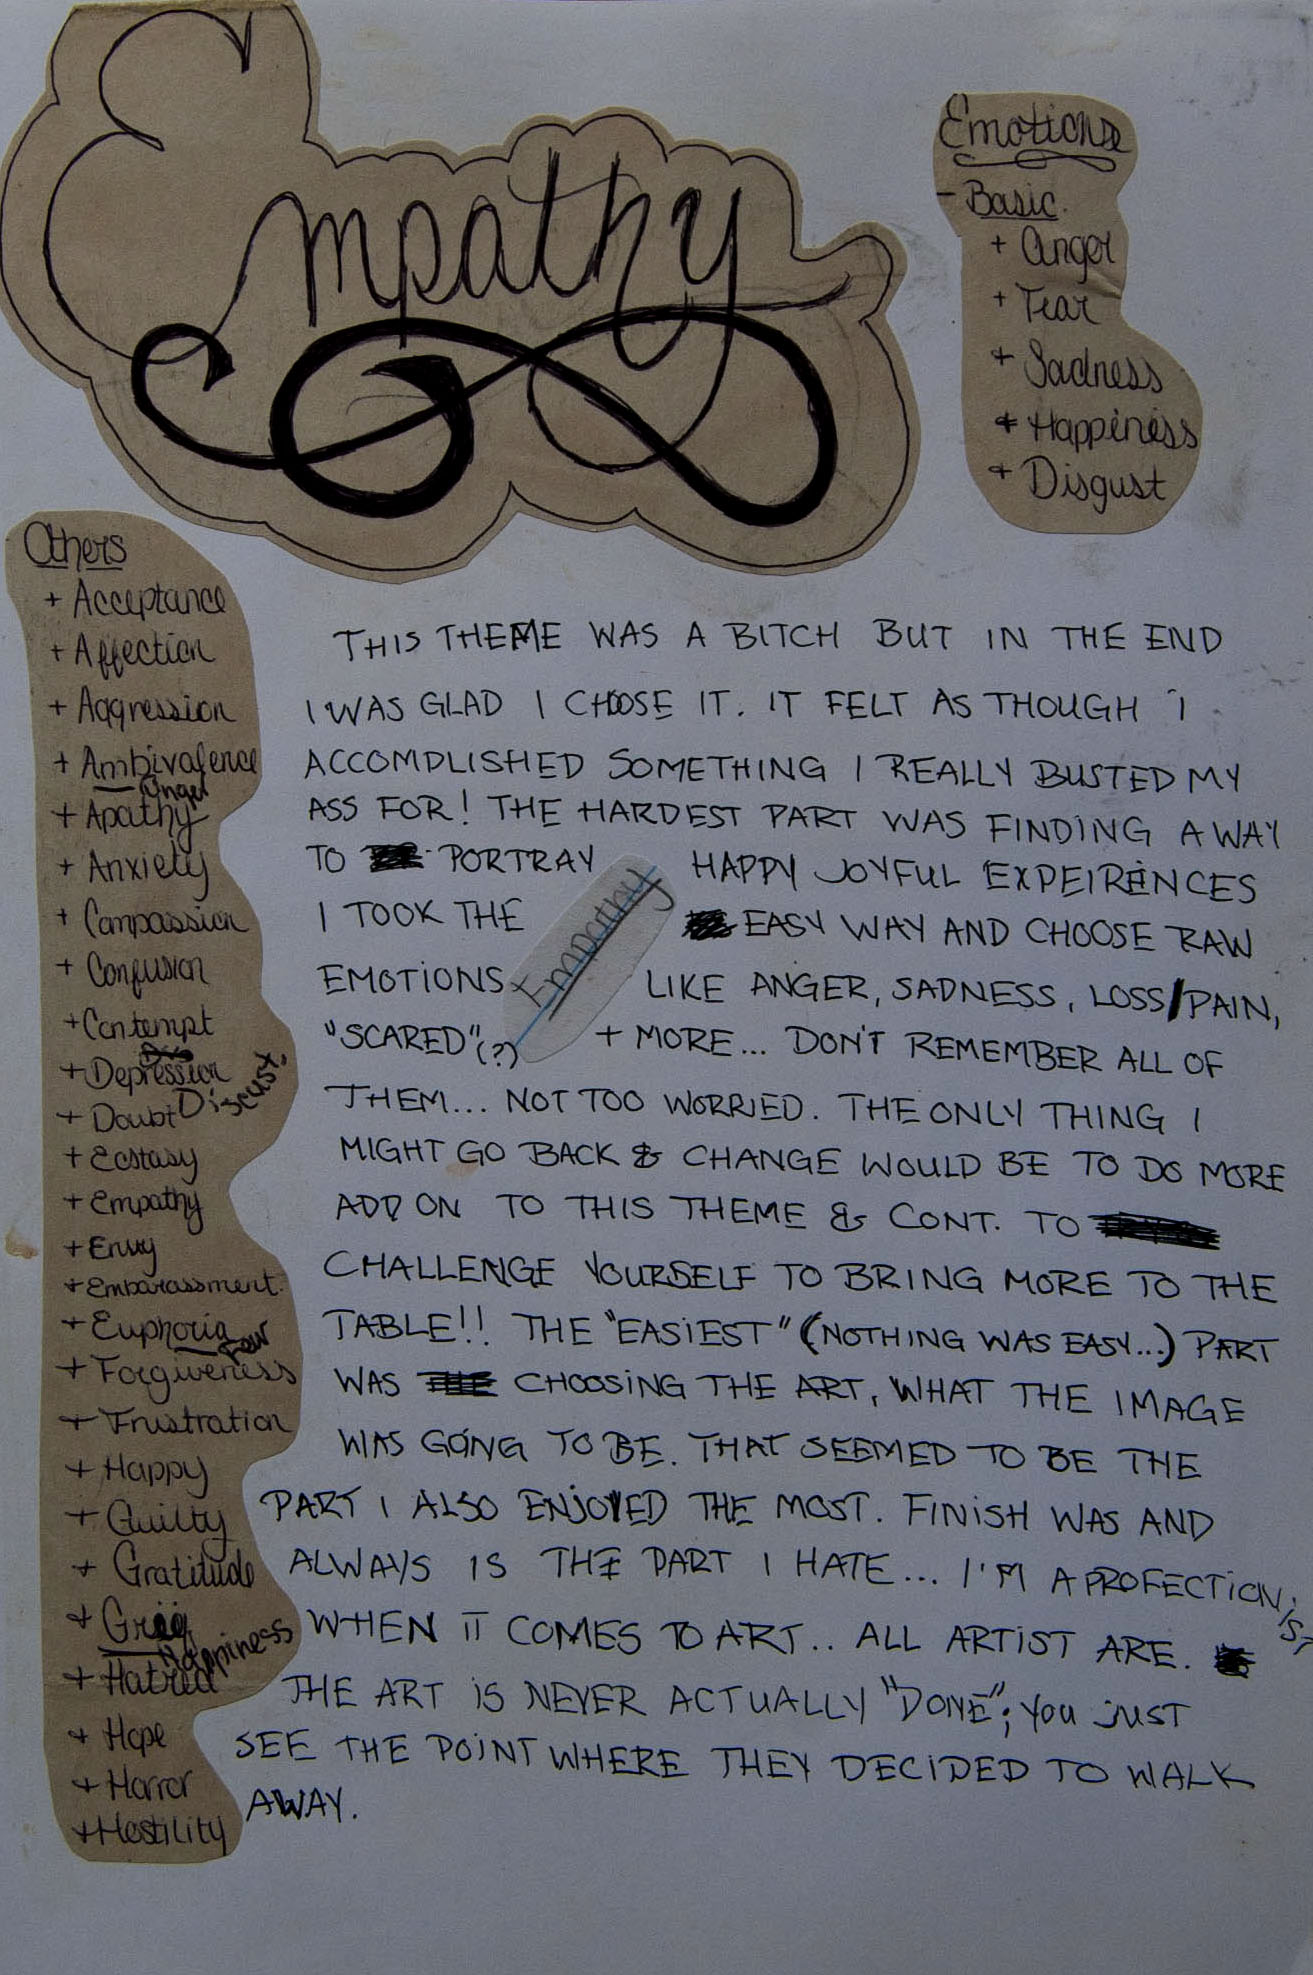 Empathy
Emotions
- Basic.
+ Anger
+ Fear
+ Sadness
+ Happiness
+ Disgust
Others
+ Acceptance
+ Affection
+ Aggression
+ Ambivalence
Anger
+ Apathy
+ Anxiety
+ Compassion
+ Confusion
+ Contempt
+ Depression
Discust.
+ Doubt
+ Ecstasy
+ Empathy
+ Envy
+ Embarassment.
+ Euphoria
Fear
+ Forgiveness
+ Frustration
+ Happy
+ Guilty
+ Gratitude
+
Happiness
+ Hatred
+ Hope
+ Horror
+ Hostility
THIS THEME WAS A BITCH BUT IN THE END
I WAS GLAD I CHOOSE IT. IT FELT AS THOUGH I
ACCOMPLISHED SOMETHING I REALLY BUSTED MY
ASS FOR! THE HARDEST PART WAS FINDING A WAY
TO PORTRAY HAPPY JOYFUL EXPEIRENCES
I TOOK THE EASY WAY AND CHOOSE RAW
Empathy
EMOTIONS LIKE ANGER, SADNESS, LOSS/PAIN,
"SCARED"(?) + MORE... DON'T REMEMBER ALL OF
THEM... NOT TOO WORRIED. THE ONLY THING I
MIGHT GO BACK & CHANGE WOULD BE TO DO MORE
ADD ON TO THIS THEME & CONT. TO
CHALLENGE YOURSELF TO BRING MORE TO THE
TABLE!! THE "EASIEST" (NOTHING WAS EASY...) PART
WAS CHOOSING THE ART, WHAT THE IMAGE
WAS GOING TO BE. THAT SEEMED TO BE THE
PART I ALSO ENJOYED THE MOST. FINISH WAS AND
ALWAYS IS THE PART I HATE... I'M A PROFECTIONIST
WHEN IT COMES TO ART.. ALL ARTIST ARE.
THE ART IS NEVER ACTUALLY "DONE"; YOU JUST
SEE THE POINT WHERE THEY DECIDED TO WALK
AWAY.